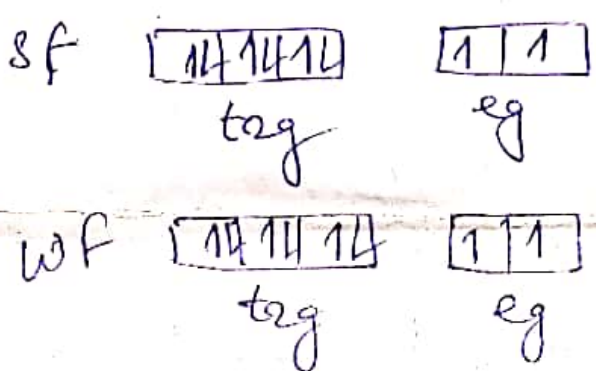 SF 1↿⇂ 1↿⇂ 1↿⇂ 1 1
t2g eg
WF 1↿⇂ 1↿⇂ 1↿⇂ 1 1
t2g eg